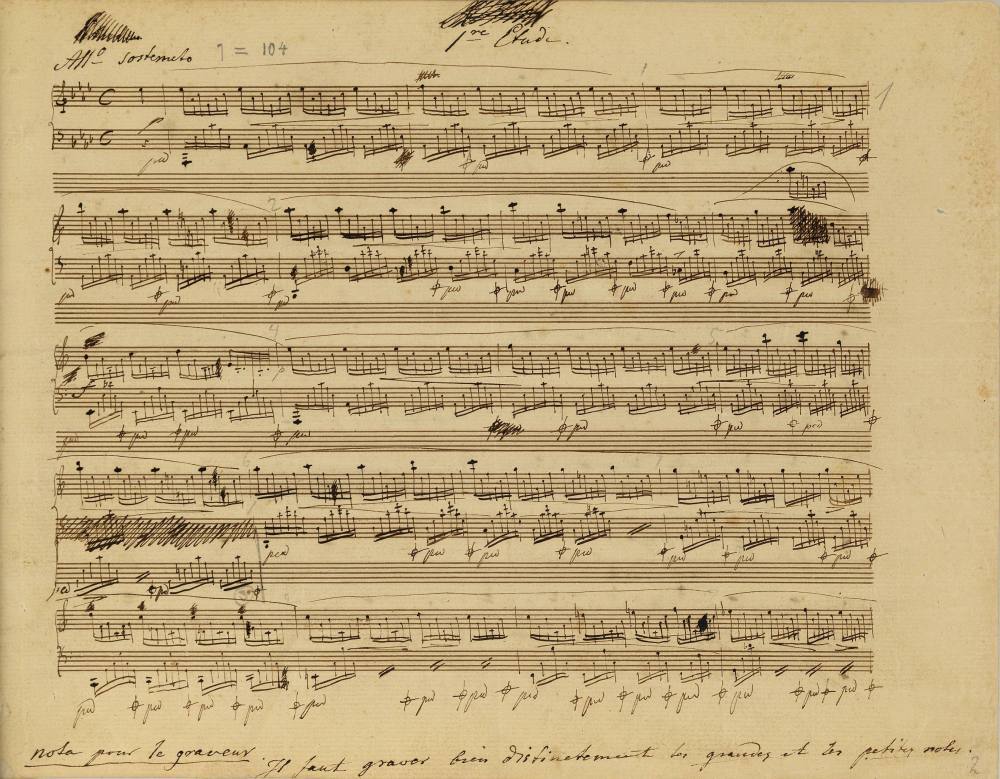 1re Etude.
Allo sostenuto ♩ = 104
1
ped ped ped
2
ped ped ped ped ped ped ped ped ped ped
4 5
f
ped ped ped ped ped ped ped
6
ped ped ped ped ped ped ped
ped ped
ped ped ped ped ped ped ped ped ped ped ped ped ped
nota pour le graveur. Il faut graver bien distinctement les grandes et les petites notes.
2